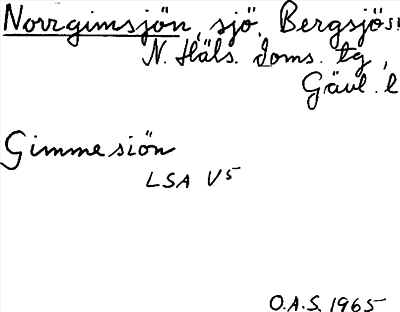 Norrgimsjön, sjö, Bergsjö s:
N. Häls. doms. tg,
Gävl. l
Gimmesiön
LSA V5
O.A.S. 1965